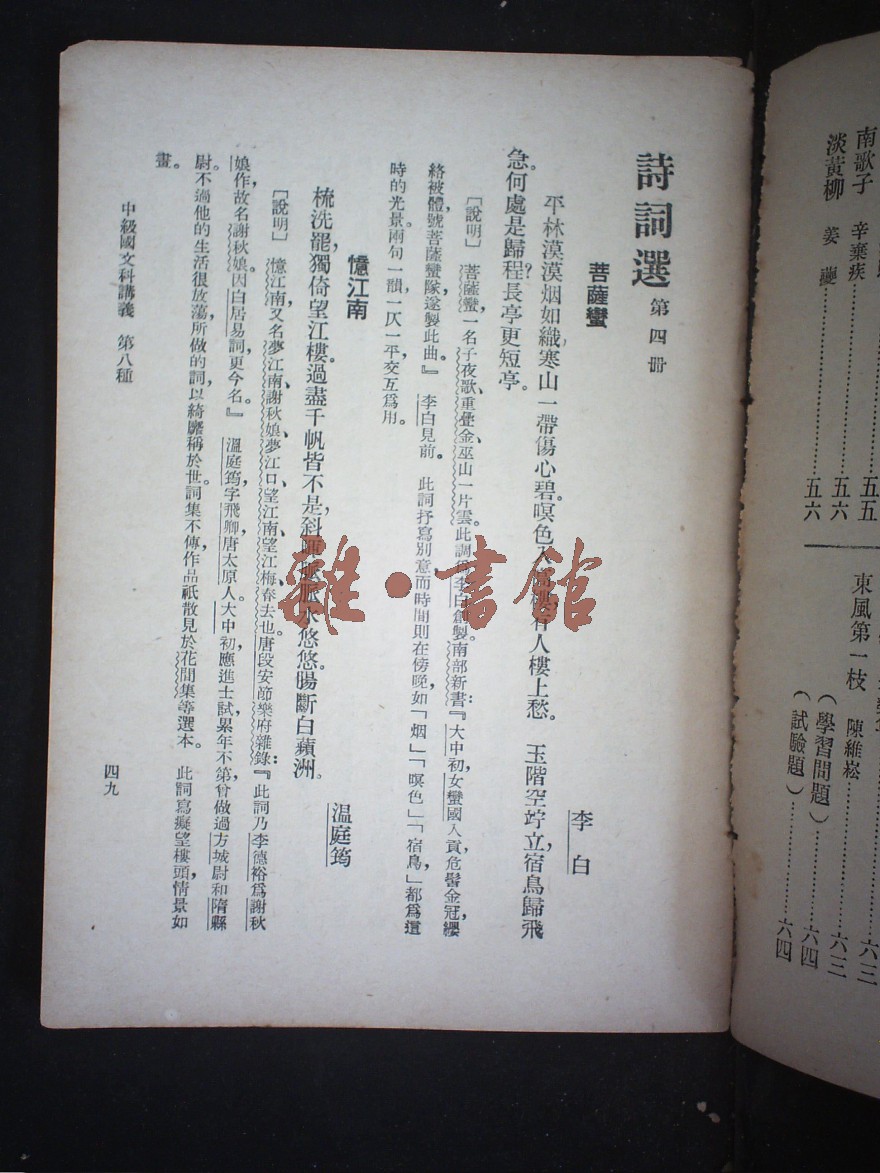 詩詞選 第四冊
菩薩蠻
李白
平林漠漠烟如織寒山一帶傷心碧。暝色入高樓有人樓上愁。 玉階空竚立宿鳥歸飛
急。何處是歸程？長亭更短亭。
［說明］ 菩薩蠻，一名子夜歌、重疊金、巫山一片雲。此調係李白創製。南部新書：『大中初，女蠻國人貢，危髻金冠，纓
絡被體，號菩薩蠻隊，遂製此曲。』 李白見前。 此詞抒寫別意，而時間則在傍晚，如「烟」「暝色」「宿鳥」都爲這
時的光景。兩句一韻，一仄一平，交互爲用。
憶江南
温庭筠
梳洗罷，獨倚望江樓。過盡千帆皆不是，斜暉脈脈水悠悠。腸斷白蘋洲。
［說明］ 憶江南，又名夢江南、謝秋娘、夢江口、望江南、望江梅、春去也。唐段安節樂府雜錄：『此詞乃李德裕爲謝秋
娘作，故名謝秋娘。因白居易詞，更今名。』 溫庭筠，字飛卿，唐太原人。大中初，應進士試，累年不第，曾做過方城尉和隋縣
尉。不過他的生活很放蕩，所做的詞，以綺靡稱於世。詞集不傳，作品祇散見於花間集等選本。 此詞寫癡望樓頭，情景如
畫。
中級國文科講義 第八種
四九
南歌子 辛棄疾……五五
淡黃柳 姜夔……五六
五六
六三
東風第一枝 陳維崧……六三
（學習問題）……六四
（試驗題）……六四
雜·書館